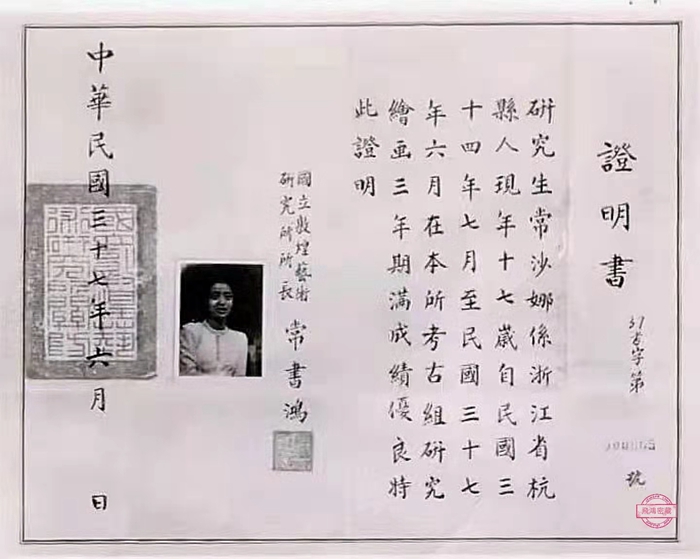 證明書
字第
號
研究生常沙娜係浙江省杭
縣人現年十七歲自民國三
十四年七月至民國三十七
年六月在本所考古組研究
繪画三年期滿成績優良特
此證明
國立敦煌藝術
研究所所長
常書鴻
中華民國三十七年六月　日